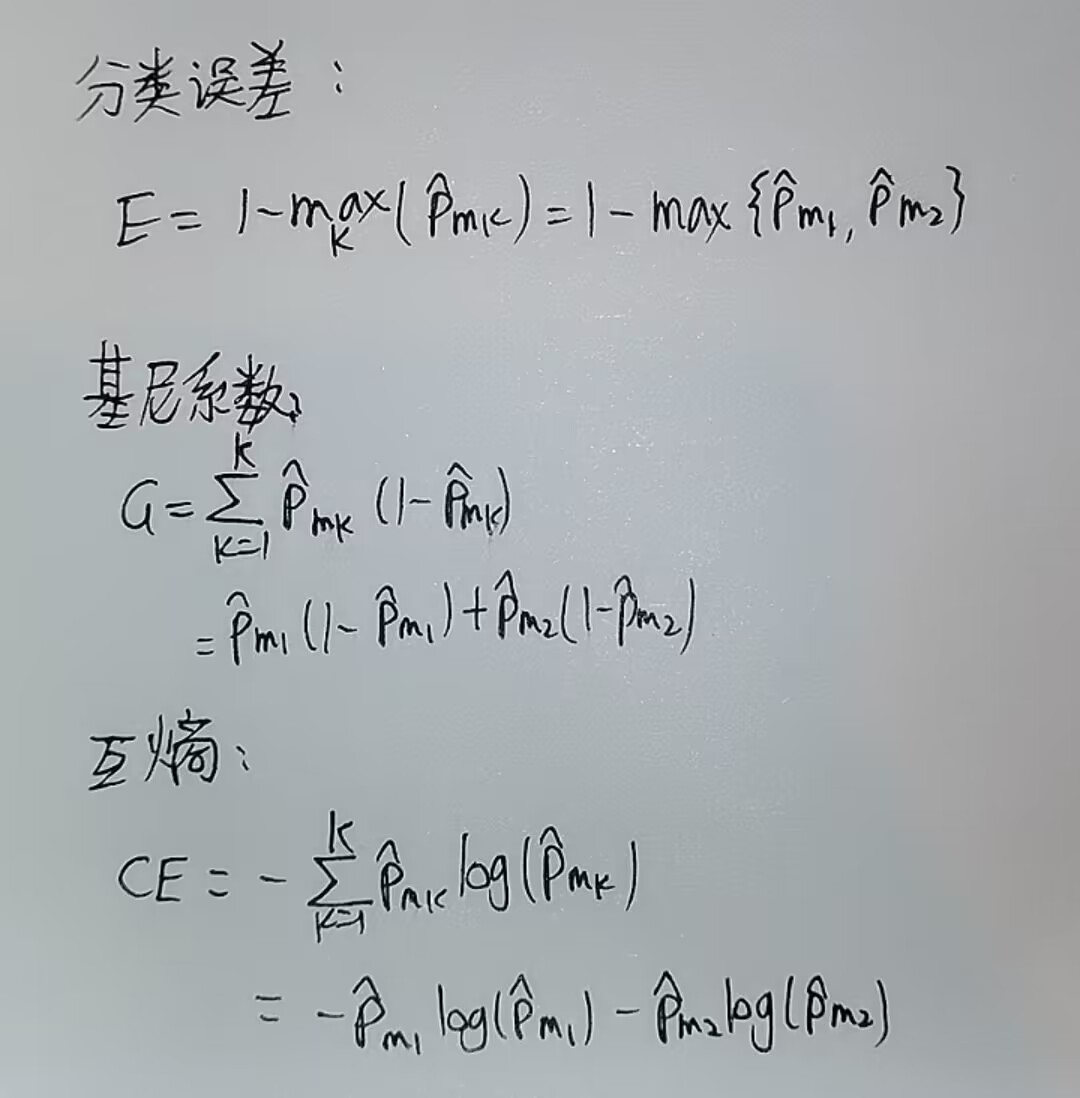 分类误差：
E = 1-max_k(p̂_mk) = 1 - max {p̂_m1, p̂_m2}
基尼系数：
G = ∑_{k=1}^{K} p̂_mk (1-p̂_mk)
= p̂_m1 (1-p̂_m1) + p̂_m2 (1-p̂_m2)
互熵：
CE = - ∑_{k=1}^{K} p̂_mk log(p̂_mk)
= -p̂_m1 log(p̂_m1) - p̂_m2 log(p̂_m2)